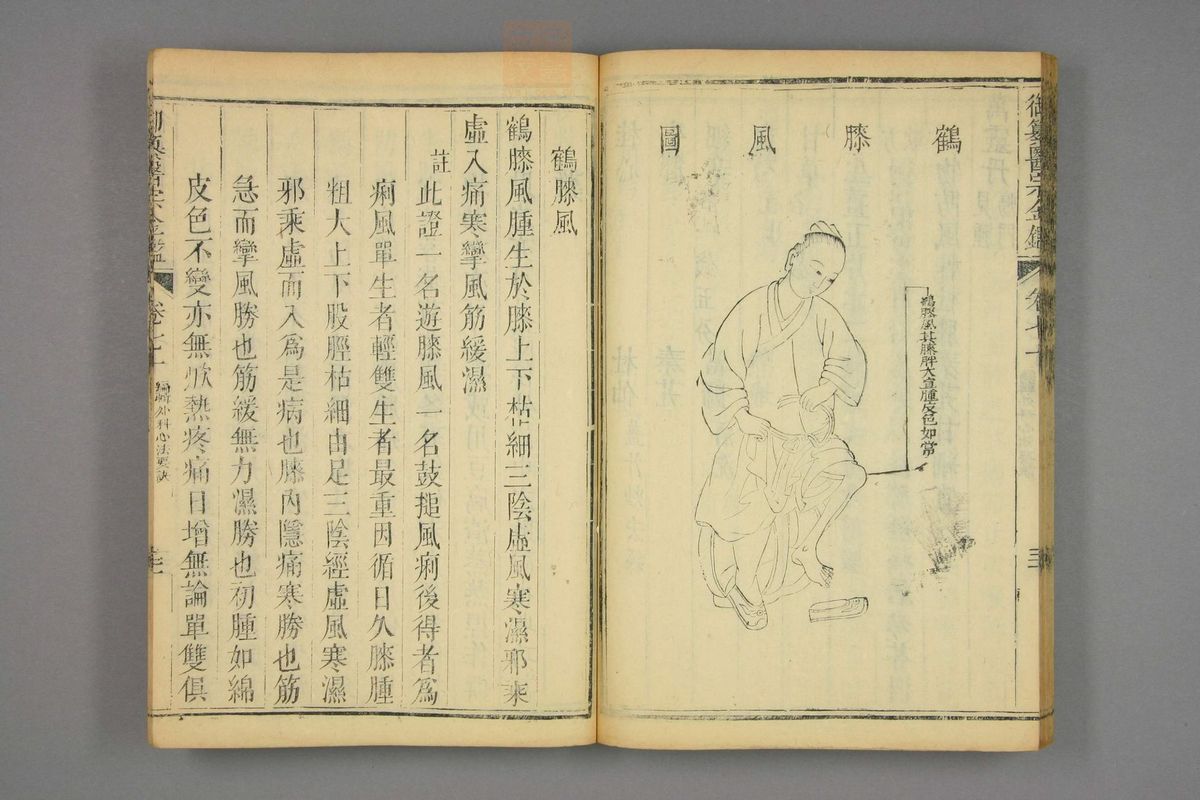 御纂醫宗金鑑
卷七十
鶴膝風圖
鶴膝風其膝胖大宣腫皮色如常
鶴膝風
鶴膝風腫生於膝上下枯細三陰虛風寒濕邪乘
虛入痛寒攣風筋緩濕
註此證一名遊膝風一名鼓搥風痢後得者爲
痢風單生者輕雙生者最重因循日久膝腫
粗大上下股脛枯細由足三陰經虛風寒濕
邪乘虛而入爲是病也膝內隱痛寒勝也筋
急而攣風勝也筋緩無力濕勝也初腫如綿
皮色不變亦無焮熱疼痛日增無論單雙俱
御纂醫宗金鑑
編輯外科心法要訣